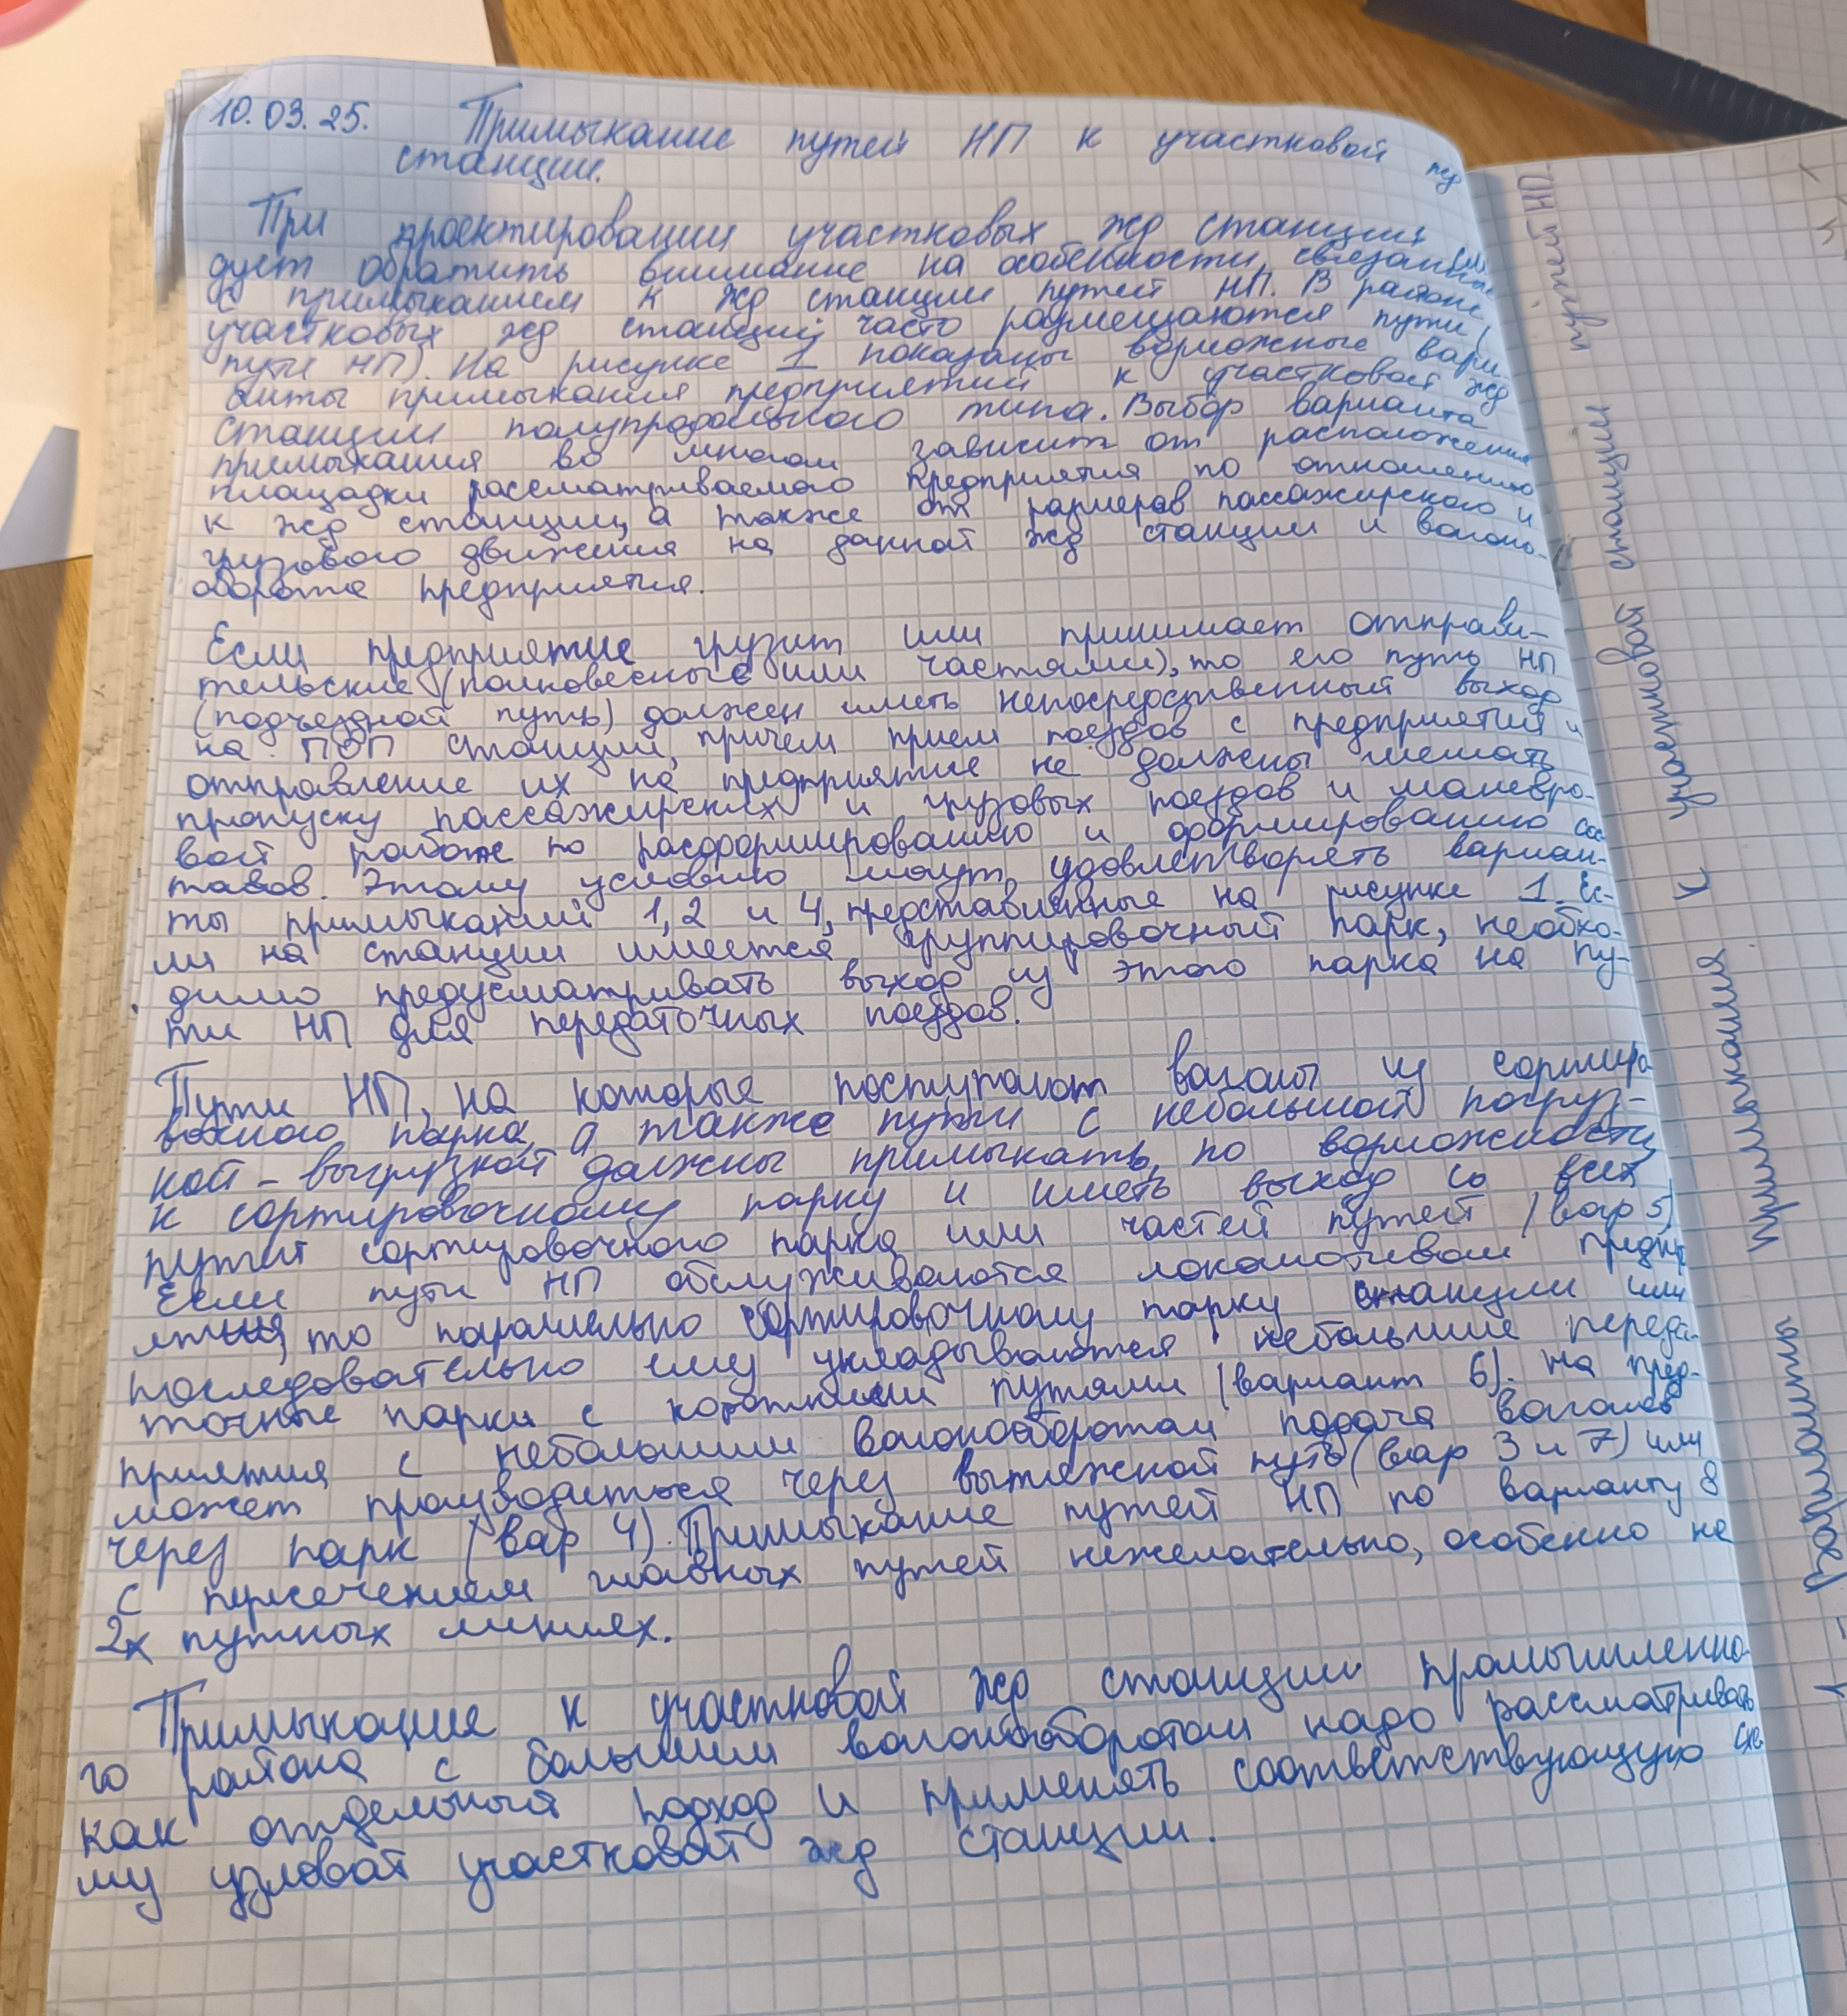 10.03.25. Примыкание путей НП к участковой жд
станции.
При проектировании участковых жд станций сле
дует обратить внимание на особенности, связанные
с примыканием к жд станции путей НП. В районе
участковых жд станций часто размещаются пути (
пути НП). На рисунке 1 показаны возможные вари-
анты примыкания предприятий к участковой жд
станции полупродольного типа. Выбор варианта
примыкания во многом зависит от расположения
площадки рассматриваемого предприятия по отношению
к жд станции, а также от размеров пассажирского и
грузового движения на данной жд станции и вагоно-
оборота предприятия.
Если предприятие грузит или принимает отправи-
тельские (полновесные или частями), то его путь НП
(подъездной путь) должен иметь непосредственный выход
на ПОП станции, причем прием поездов с предприятий и
отправление их на предприятие не должны мешать
пропуску пассажирских и грузовых поездов и маневро-
вой работе по расформированию и формированию сос
тавов. Этому условию могут удовлетворять вариан-
ты примыканий 1, 2 и 4, представленные на рисунке 1. Ес-
ли на станции имеется группировочный парк, необхо-
димо предусматривать выход из этого парка на пу-
ти НП для передаточных поездов.
Пути НП, на которые поступают вагоны из сортиро
вочного парка, а также пути с небольшой погруз-
кой - выгрузкой должны примыкать, по возможности,
к сортировочному парку и иметь выход со всех
путей сортировочного парка или частей путей (вар 5)
Если пути НП обслуживаются локомотивом предпр
иятия, то параллельно сортировочному парку станции или
последовательно ему укладываются небольшие переда-
точные парки с короткими путями (вариант 6). На пред-
приятия с небольшим вагонооборотом подача вагонов
может производиться через вытяжной путь (вар 3 и 7) или
через парк (вар 4). Примыкание путей НП по варианту 8
с пересечением главных путей нежелательно, особенно на
2х путных линиях.
Примыкание к участковой жд станции промышленно-
го района с большим вагонооборотом надо рассматривать
как отдельный подход и применять соответствующую схе
му узловой участковой жд станции.
1 - Варианты примыкания к участковой станции путей НП